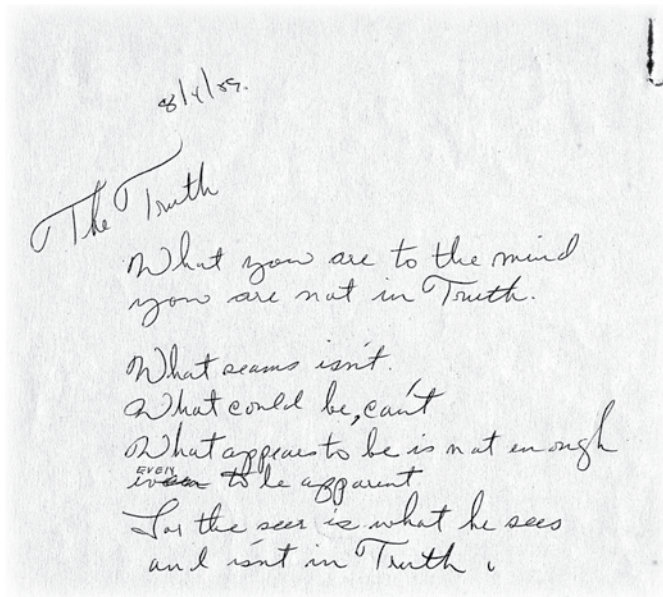 The Truth
What you are to the mind
you are not in Truth.
What seams isn't.
What could be, can't
What appears to be is not enough
EVEN
to be apparent
For the seer is what he sees
and isn't in Truth.